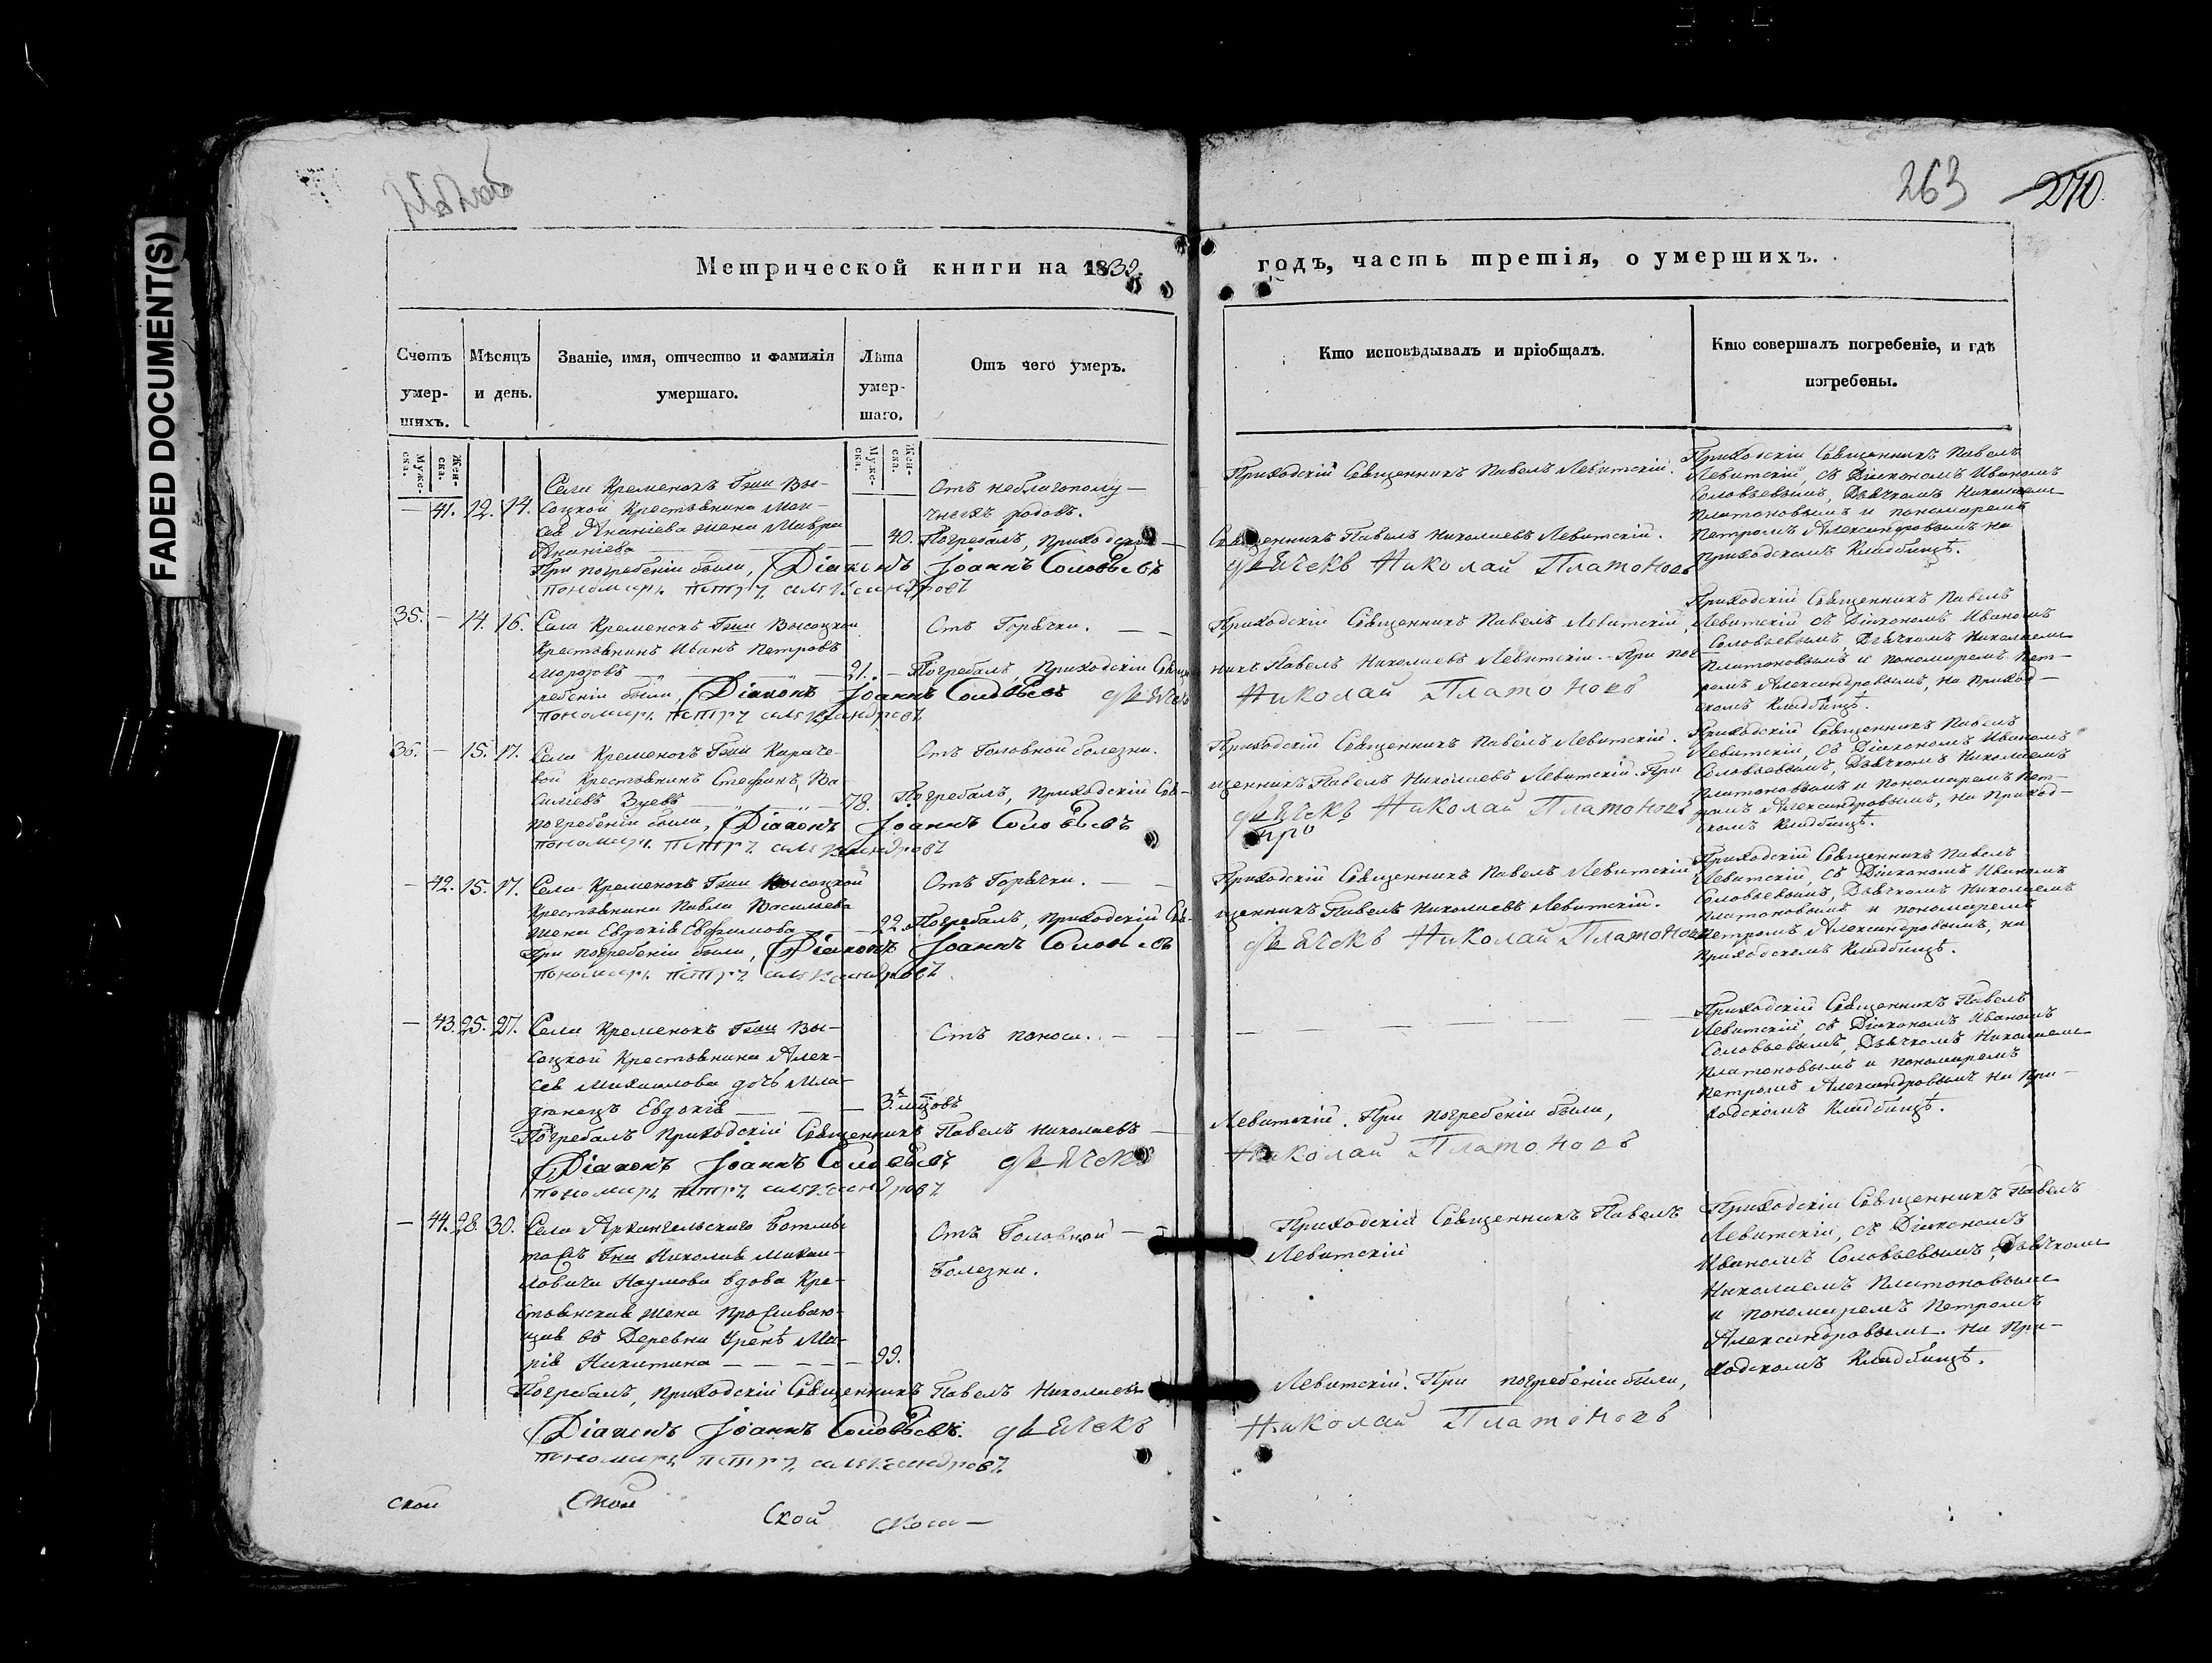 FADED DOCUMENT(S)
263 270.
Метрической книги на 1839. годъ, часть третія, о умершихъ.
Счетъ умер-шихъ.
Мѣсяцъ и день.
Званіе, имя, отчество и фамилія умершаго.
Лѣта умер-шаго.
Отъ чего умеръ.
Кто исповѣдывалъ и пріобщалъ.
Кто совершалъ погребеніе, и гдѣ погребены.
Мужес-ка.
Жен-ска.
Мужес-ка.
Жен-ска.
— 41. 12. 14. Села Кременокъ Гжи Вы-
соцкой Крестьянина Мои-
сея Ананіева жена Мавра
Ананіева — 40.
Отъ неблагополу-
чныхъ родовъ.
Приходскій Священникъ Павелъ Левитскій.
Приходскій Священникъ Павелъ
Левитскій, съ Діакономъ Иваномъ
Соловьевымъ, Дьячкомъ Николаемъ
Платоновымъ и пономаремъ
Петромъ Александровымъ на
приходскомъ Кладбищѣ.
Погребалъ, приходскій Священникъ Павелъ Николаевъ Левитскій.
При погребеніи были, Діаконъ Іоаннъ Соловьевъ дьячекъ Николай Платоновъ
пономарь петръ александровъ
35. — 14. 16. Села Кременокъ Гжи Высоцкой
Крестьянинъ Иванъ Петровъ
Морозовъ — 21. —
Отъ Горячки. — —
Приходскій Священникъ Павелъ Левитскій.
Приходскій Священникъ Павелъ
Левитскій съ Діакономъ Иваномъ
Соловьевымъ, Дьячкомъ Николаемъ
Платоновымъ и пономаремъ Пет-
ромъ Александровымъ, на Приход-
скомъ Кладбищѣ.
Погребалъ, Приходскій Священникъ Павелъ Николаевъ Левитскій. При пог-
ребеніи были, Діаконъ Іоаннъ Соловьевъ дьячекъ Николай Платоновъ
пономарь петръ александровъ
36. — 15. 17. Села Кременокъ Гжи Караче-
вой Крестьянинъ Стефанъ Ва-
сильевъ Зуевъ — 78.
Отъ Головной болезни.
Приходскій Священникъ Павелъ Левитскій.
Приходскій Священникъ Павелъ
Левитскій, съ Діакономъ Иваномъ
Соловьевымъ, Дьячкомъ Николаемъ
Платоновымъ и Пономаремъ Пет-
ромъ Александровымъ, на Приход-
скомъ Кладбищѣ.
Погребалъ, Приходскій Священникъ Павелъ Николаевъ Левитскій. При
погребеніи были, Діаконъ Іоаннъ Соловьевъ дьячекъ Николай Платоновъ
пономарь петръ александровъ
про
— 42. 15. 17. Села Кременокъ Гжи Высоцкой
Крестьянина Павла Васильева
жена Евдокія Евфимова — 22.
Отъ Горячки. — —
Приходскій Священникъ Павелъ Левитскій
Приходскій Священникъ Павелъ
Левитскій, съ Діакономъ Иваномъ
Соловьевымъ, Дьячкомъ Николаемъ
Платоновымъ и пономаремъ
Петромъ Александровымъ, на
приходскомъ Кладбищѣ.
Погребалъ, Приходскій Священникъ Павелъ Николаевъ Левитскій.
При погребеніи были, Діаконъ Іоаннъ Соловьевъ дьячекъ Николай Платоновъ
пономарь петръ александровъ
— 43. 25. 27. Села Кременокъ Гжи Вы-
соцкой Крестьянина Алек-
сея Михаилова дочь Мла-
денецъ Евдокія — — — 3. мцовъ
Отъ поноса. — —
Приходскій Священникъ Павелъ
Левитскій, съ Діакономъ Иваномъ
Соловьевымъ, Дьячкомъ Николаемъ
Платоновымъ и пономаремъ
Петромъ Александровымъ на При-
ходскомъ Кладбищѣ.
Погребалъ Приходскій Священникъ Павелъ Николаевъ — Левитскій. При погребеніи были,
Діаконъ Іоаннъ Соловьевъ дьячекъ Николай Платоновъ
пономарь петръ александровъ
— 44. 28. 30. Села Архангельскаго
Гна Николая Михаи-
ловича Наумова вдова Кре-
стьянская жена Проживаю-
щая въ Деревни Уренѣ Ма-
рія Никитина — — — — 99.
Отъ Головной —
Болезни.
Приходскій Священникъ Павелъ
Левитскій
Приходскій Священникъ Павелъ
Левитскій, съ Діакономъ
Иваномъ Соловьевымъ, Дьячкомъ
Николаемъ Платоновымъ
и пономаремъ Петромъ
Александровымъ. На При-
ходскомъ Кладбищѣ.
Погребалъ, приходскій Священникъ Павелъ Николаевъ Левитскій. При погребеніи были,
Діаконъ Іоаннъ Соловьевъ. дьячекъ Николай Платоновъ
пономарь петръ александровъ
ской Ской Ской